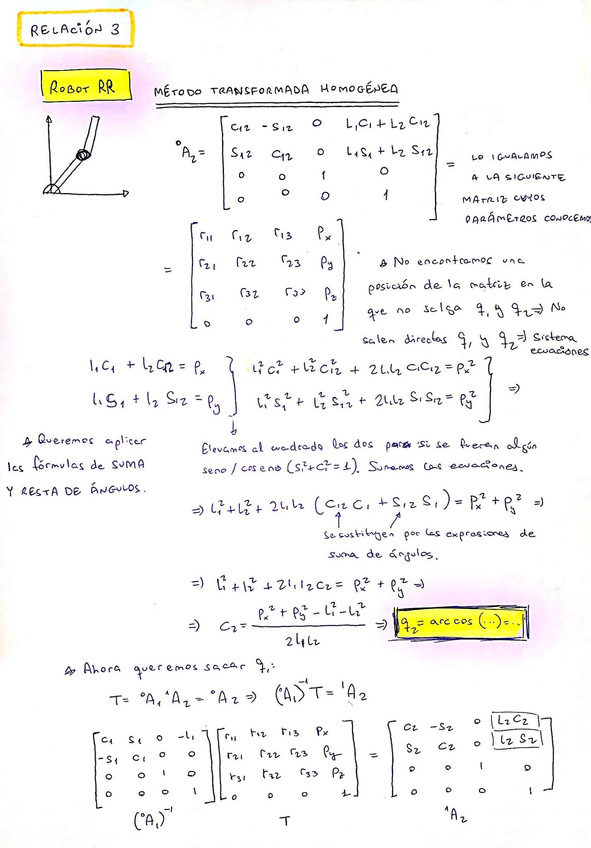 RELACIÓN 3
ROBOT RR
MÉTODO TRANSFORMADA HOMOGÉNEA
⁰A₂ = [ C12 -S12 0 L1C1 + L2C12
S12 C12 0 L1S1 + L2S12
0 0 1 0
0 0 0 1 ] =
LO IGUALAMOS
A LA SIGUIENTE
MATRIZ CUYOS
PARÁMETROS CONOCEMOS
= [ r11 r12 r13 Px
r21 r22 r23 Py
r31 r32 r33 Pz
0 0 0 1 ]
No encontramos una
posición de la matriz en la
que no salga q1 y q2 ⇒ No
salen directas q1 y q2 ⇒ Sistema
ecuaciones
l1C1 + l2C12 = Px } l1²C1² + l2²C12² + 2l1l2 C1C12 = Px² }
l1S1 + l2S12 = Py } l1²S1² + l2²S12² + 2l1l2 S1S12 = Py² } ⇒
Queremos aplicar
las fórmulas de SUMA
Y RESTA DE ÁNGULOS.
Elevamos al cuadrado los dos para si se fueran algún
seno / coseno (S1²+C1²=1). Sumamos las ecuaciones.
⇒ l1² + l2² + 2l1l2 (C12C1 + S12S1) = Px² + Py² ⇒
se sustituyen por las expresiones de
suma de ángulos.
⇒ l1² + l2² + 2l1l2C2 = Px² + Py² ⇒
⇒ C2 = (Px² + Py² - l1² - l2²) / 2l1l2 ⇒ q2 = arc cos (...) = ...
Ahora queremos sacar q1:
T = ⁰A₁ ¹A₂ = ⁰A₂ ⇒ (⁰A₁)⁻¹ T = ¹A₂
[ C1 S1 0 -l1 ] [ r11 r12 r13 Px ] [ C2 -S2 0 L2C2 ]
[ -S1 C1 0 0 ] [ r21 r22 r23 Py ] = [ S2 C2 0 L2S2 ]
[ 0 0 1 0 ] [ r31 r32 r33 Pz ] [ 0 0 1 0 ]
[ 0 0 0 1 ] [ 0 0 0 1 ] [ 0 0 0 1 ]
(⁰A₁)⁻¹ T ¹A₂